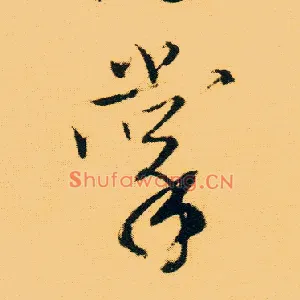 掌
Shufawang.CN